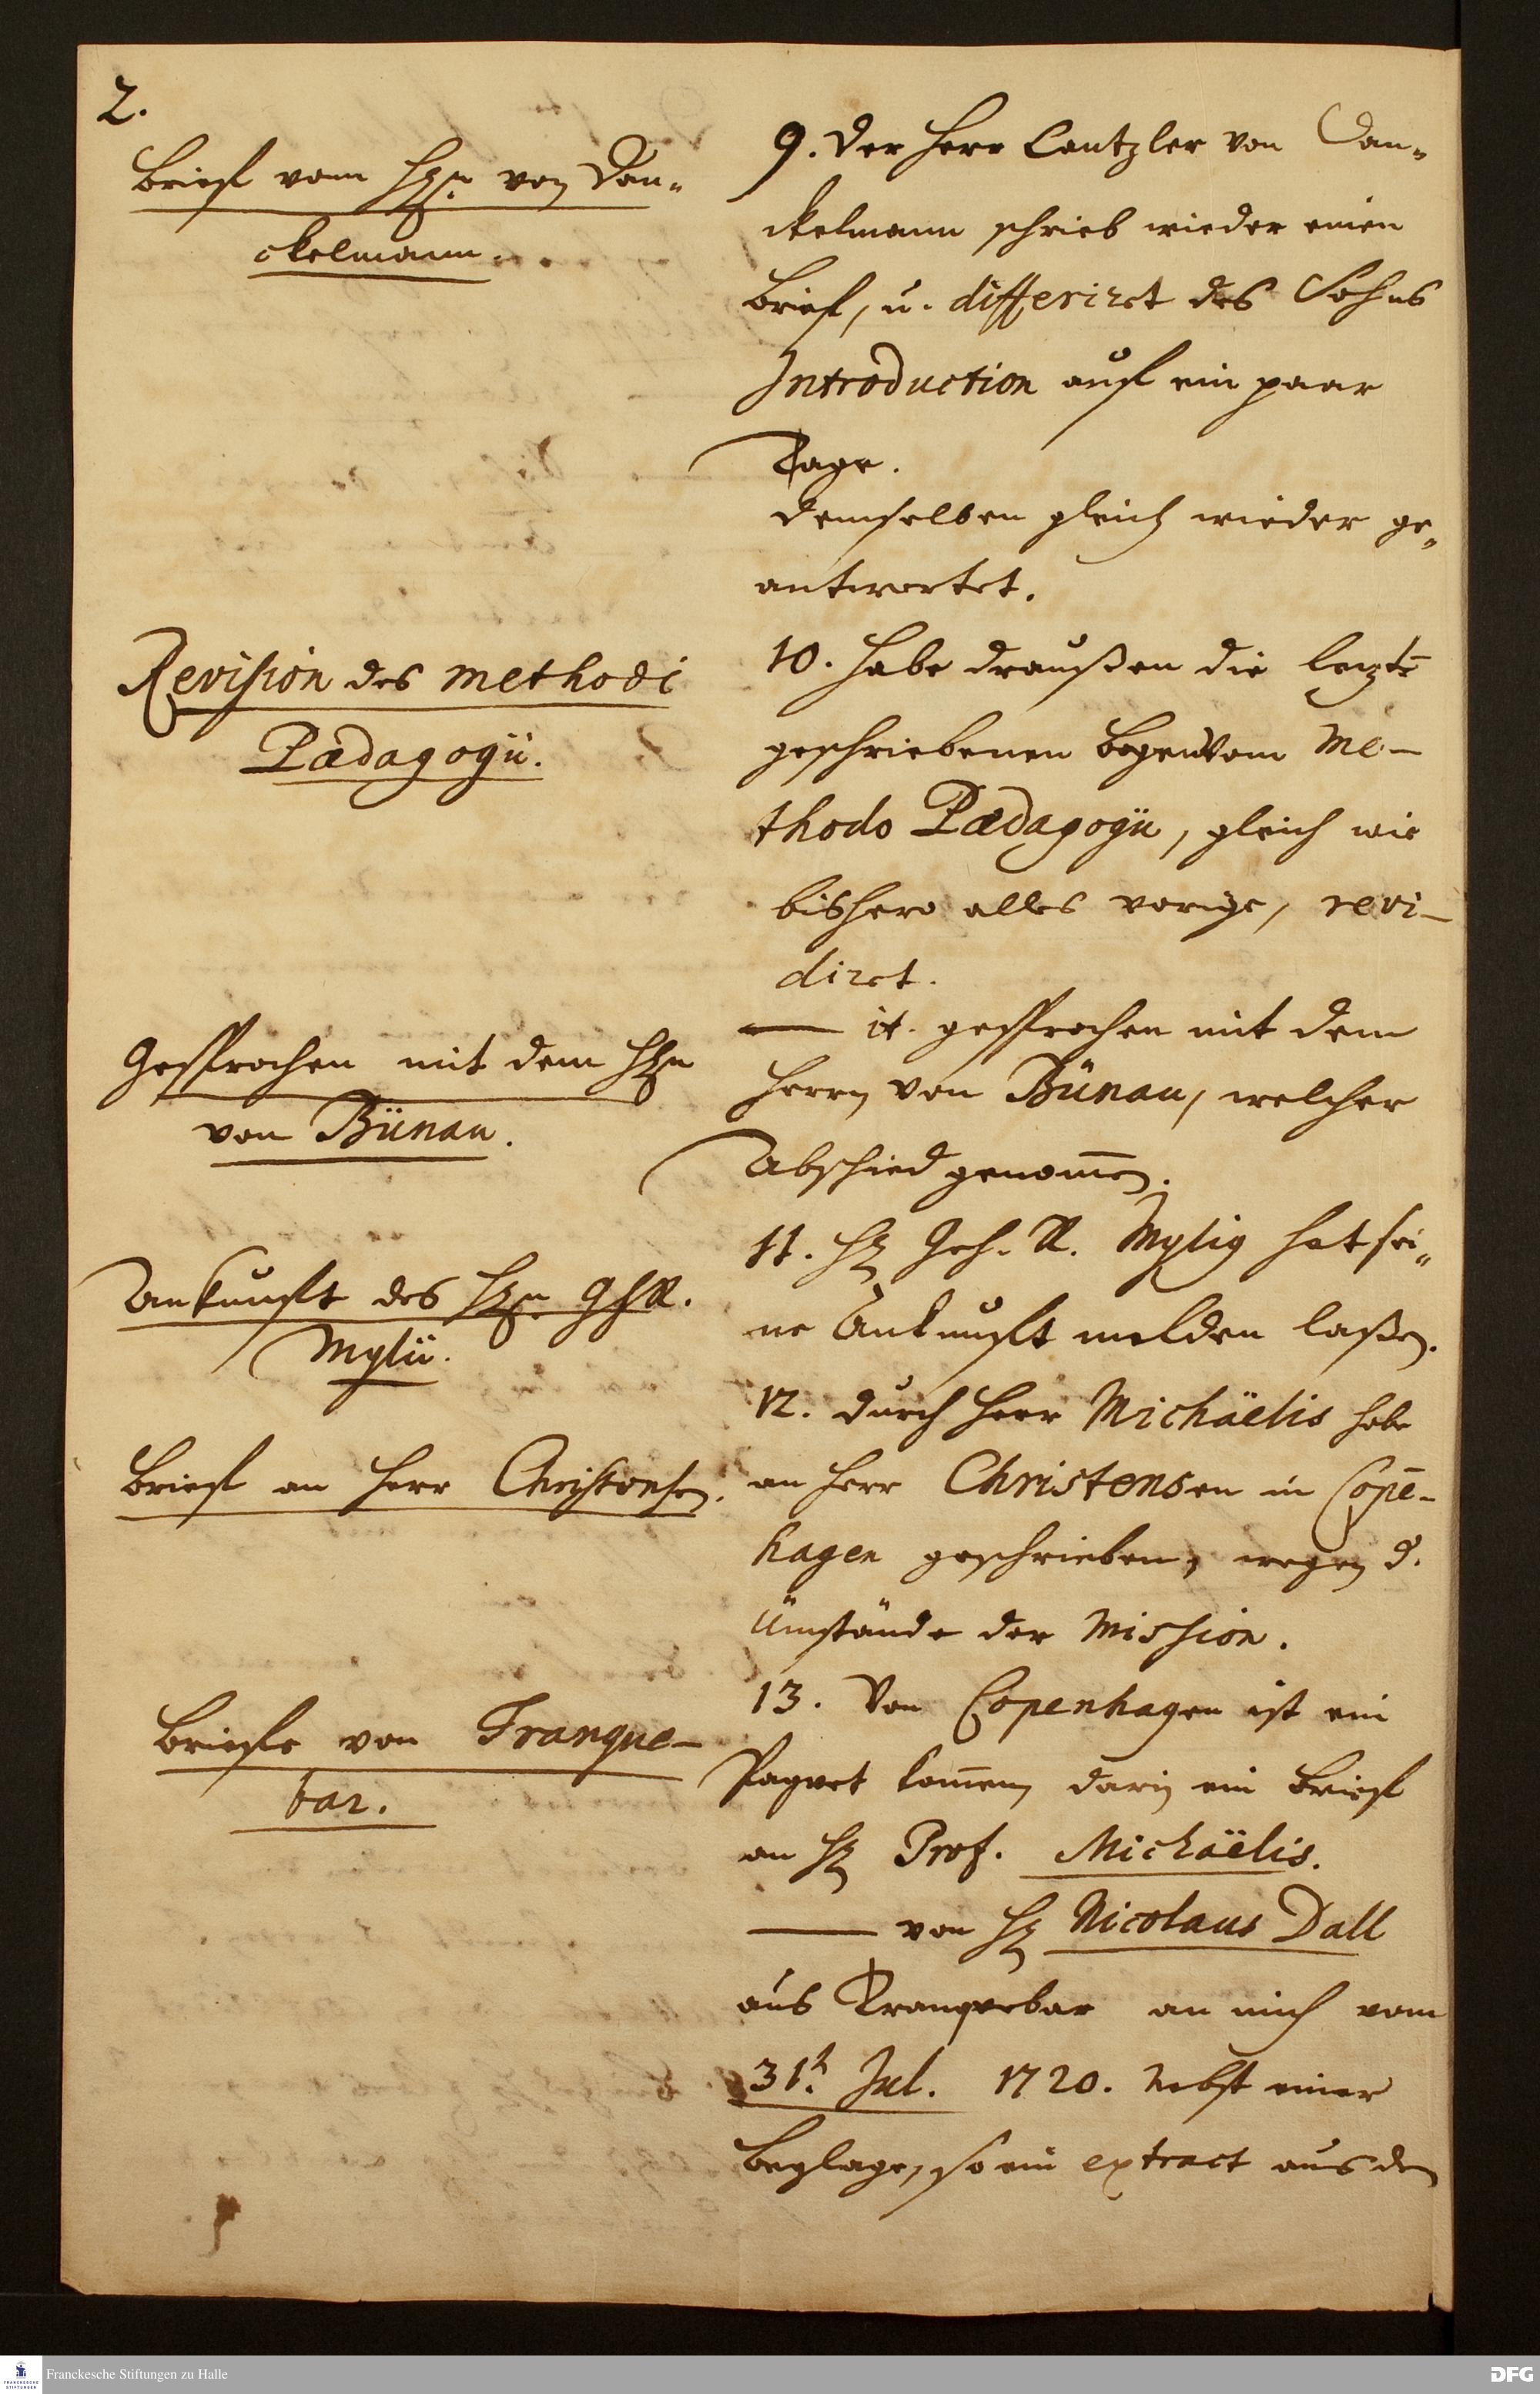 2.
Brief vom Hrn. von Dan-
ckelmann.
9. Der Herr Cantzler von Dan-
ckelmann schrieb wieder einen
Brief, u. differiret des Sohns
Introduction auf ein paar
Tage.
demselben gleich wieder ge-
antwortet.
Revision des methodi
Pædagogii.
10. Habe draußen die letzte
geschriebenen Bogen vom Me-
thodo Pædagogii, gleich wie
bishero alles vorige, revi-
diret.
Gesprochen mit dem Hrn
von Bünau.
— it. gesprochen mit dem
Herrn von Bünau, welcher
Abschied genom̄en.
Ankunft des Hrn. GhR.
Mylii.
11. Hr Geh. R. Mylig hat sei-
ne Ankunft melden laßen.
Brief an Herr Christensen.
12. Durch Herr Michäelis habe
an Herr Christensen in Cope̅-
hagen geschrieben, wegen d.
Umstände der Mission.
Briefe von Tranque-
bar.
13. Von Copenhagen ist ein
Paqvet kom̄en, darin ein Brief
an Hr Prof. Michäelis.
— von Hr Nicolaus Dall
aus Tranqvebar an mich vom
31t. Jul. 1720. Nebst einer
Beylage, so ein extract aus den
Franckesche Stiftungen zu Halle
FRANCKESCHE STIFTUNGEN
DFG